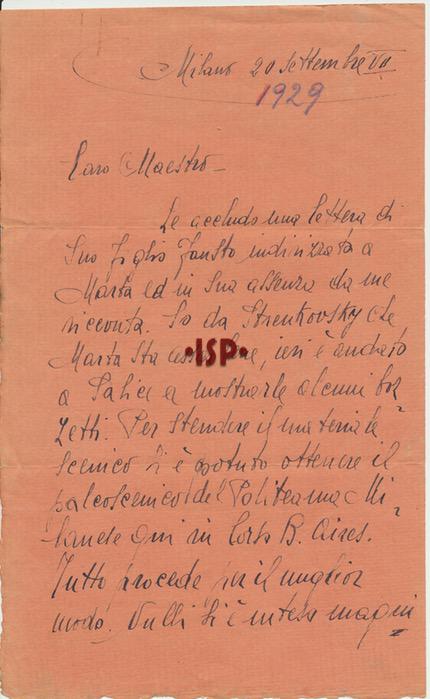 Milano 20 Settembre VII
1929
Caro Maestro –
Le accludo una lettera di
Suo figlio Fausto indirizzata a
Marta ed in Sua assenza da me
ricevuta. So da Strenkovsky che
Marta sta, ieri è andato
a Salice a mostrarle alcuni boz
zetti. Per stendere il materiale
scenico si è potuto ottenere il
palcoscenico del Politeama Mi-
lanese qui in Corso B. Aires.
Tutto procede per il miglior
modo. Nulli si è inteso magni
·ISP·